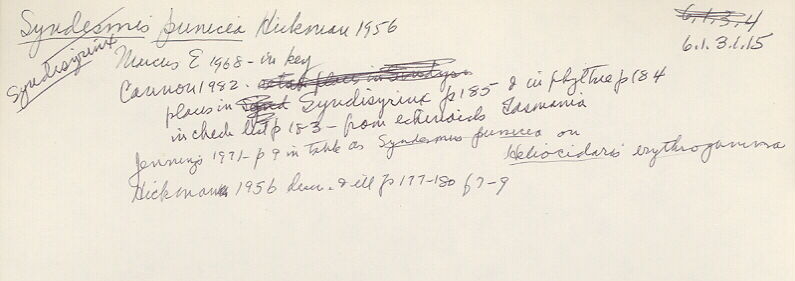 Syndesmis punicea Hickman 1956
6.1.3.4
6.1.3.1.15
Syndisyrinx
Marcus E 1968 - in key
Cannon 1982 -
places in Syndisyrinx p185 & in phyltree p184
in check list p183 - from echinoids Tasmania
Jennings 1971 - p9 in table as Syndesmis punicea on
Heliocidaris erythrogramma
Hickman 1956 descr. & ill p177-180 f7-9